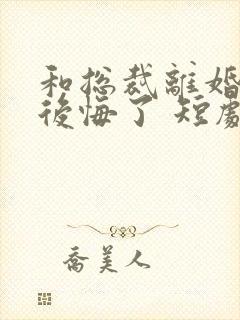 和总裁離婚
後悔了 短劇
喬美人